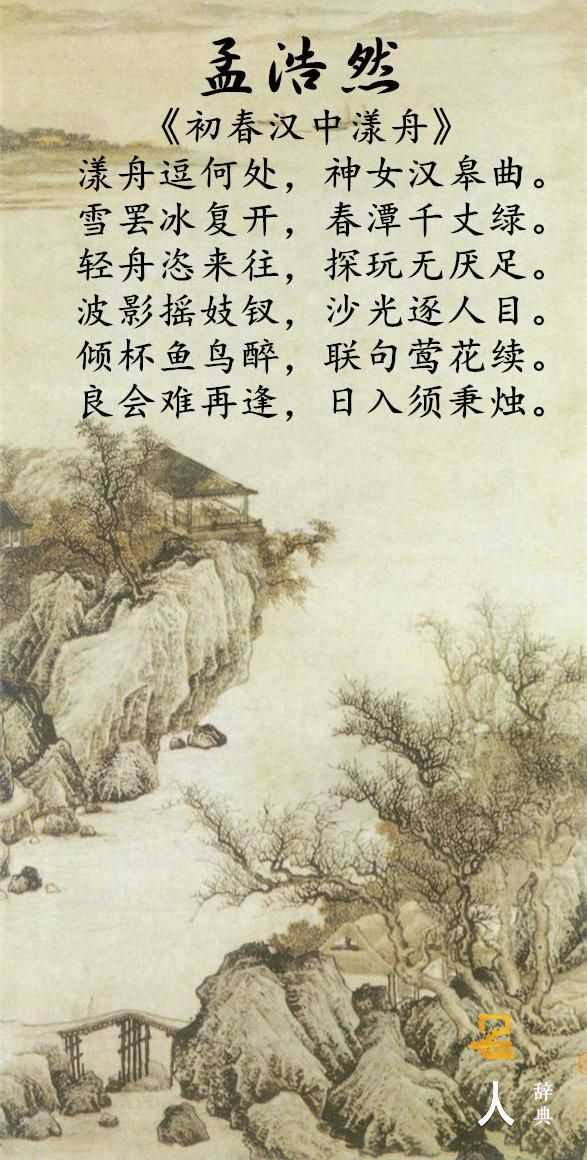 孟浩然
《初春汉中漾舟》
漾舟逗何处，神女汉皋曲。
雪罢冰复开，春潭千丈绿。
轻舟恣来往，探玩无厌足。
波影摇妓钗，沙光逐人目。
倾杯鱼鸟醉，联句莺花续。
良会难再逢，日入须秉烛。
名人
辞典